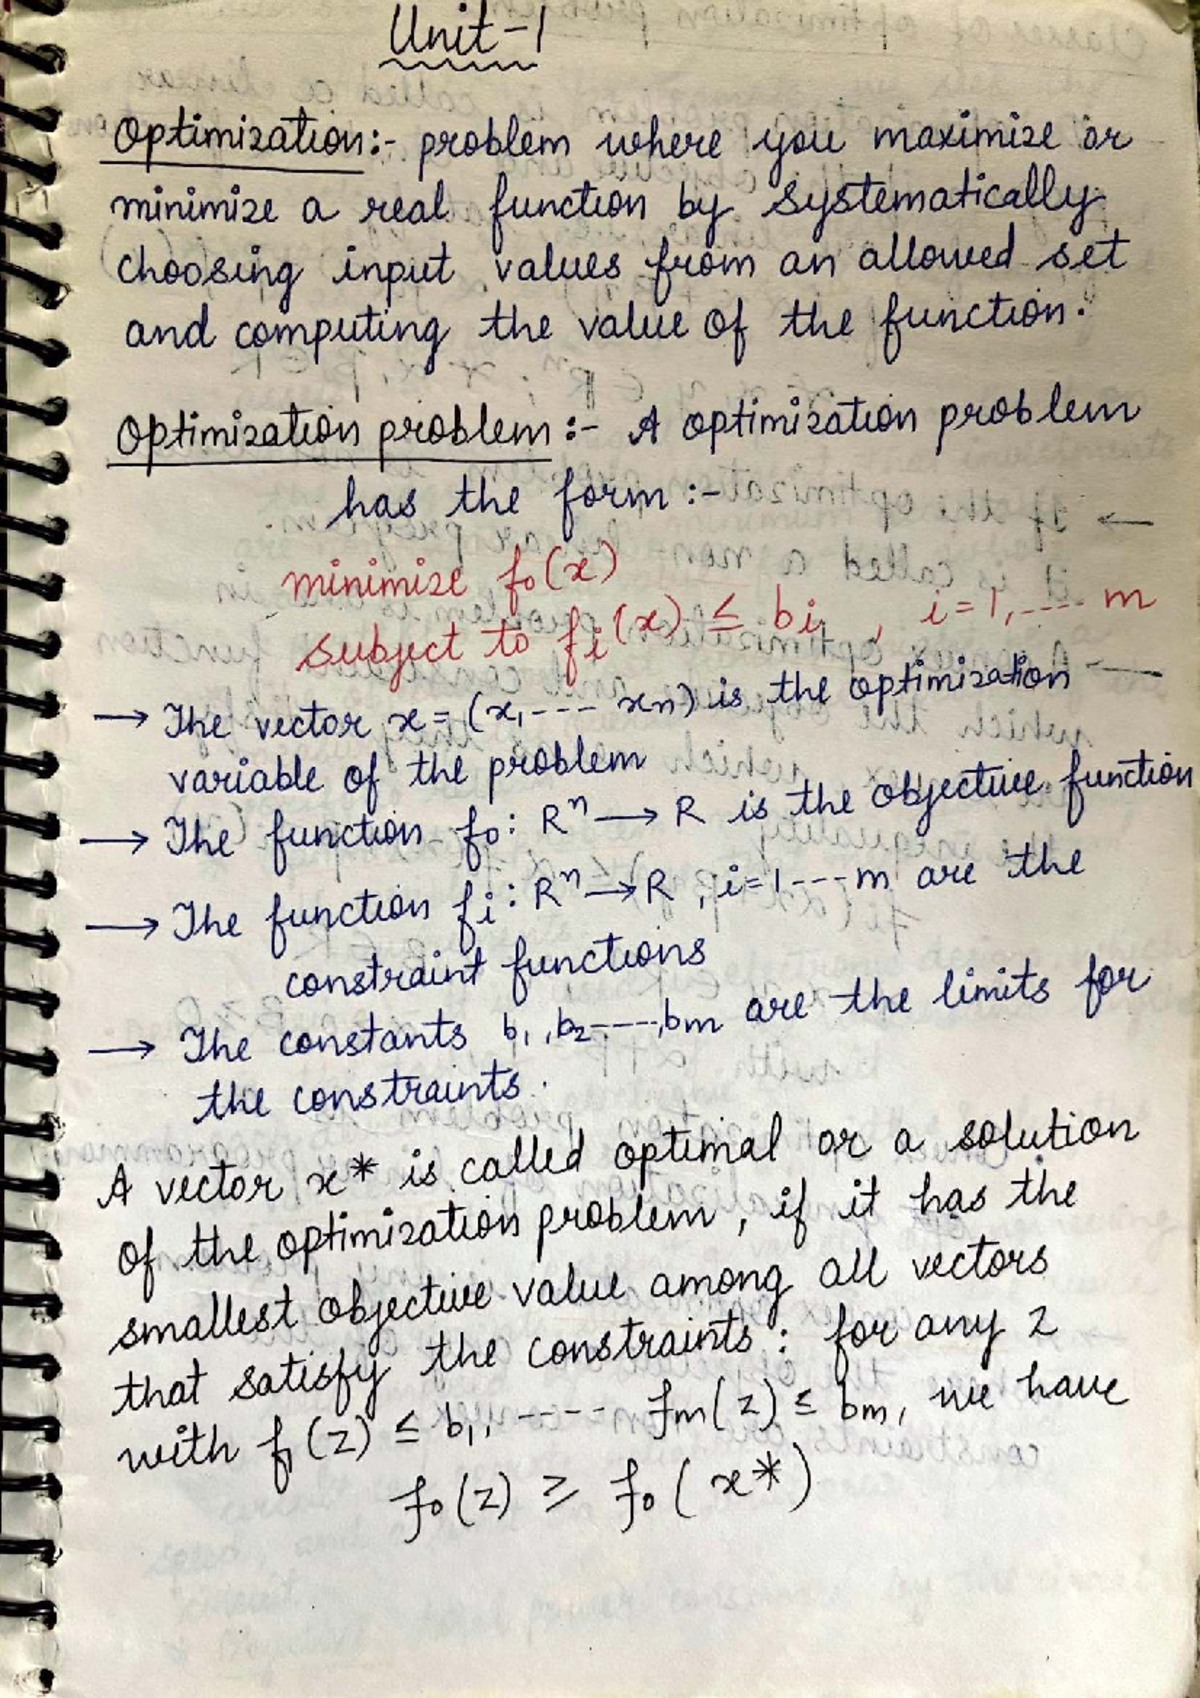 Unit-1
Optimization:- problem where you maximize or
minimize a real function by systematically
choosing input values from an allowed set
and computing the value of the function.
Optimization problem:- A optimization problem
has the form:-
minimize f₀(x)
subject to fᵢ(x) ≤ bᵢ , i=1,---- m
→ The vector x = (x₁---- xₙ) is the optimization
variable of the problem
→ The function f₀: Rⁿ → R is the objective function
→ The function fᵢ: Rⁿ → R, i=1---m are the
constraint functions
→ The constants b₁,b₂----,bm are the limits for
the constraints.
A vector x* is called optimal or a solution
of the optimization problem, if it has the
smallest objective value among all vectors
that satisfy the constraints: for any z
with f₁(z) ≤ b₁, ---- fm(z) ≤ bm, we have
f₀(z) ≥ f₀(x*)